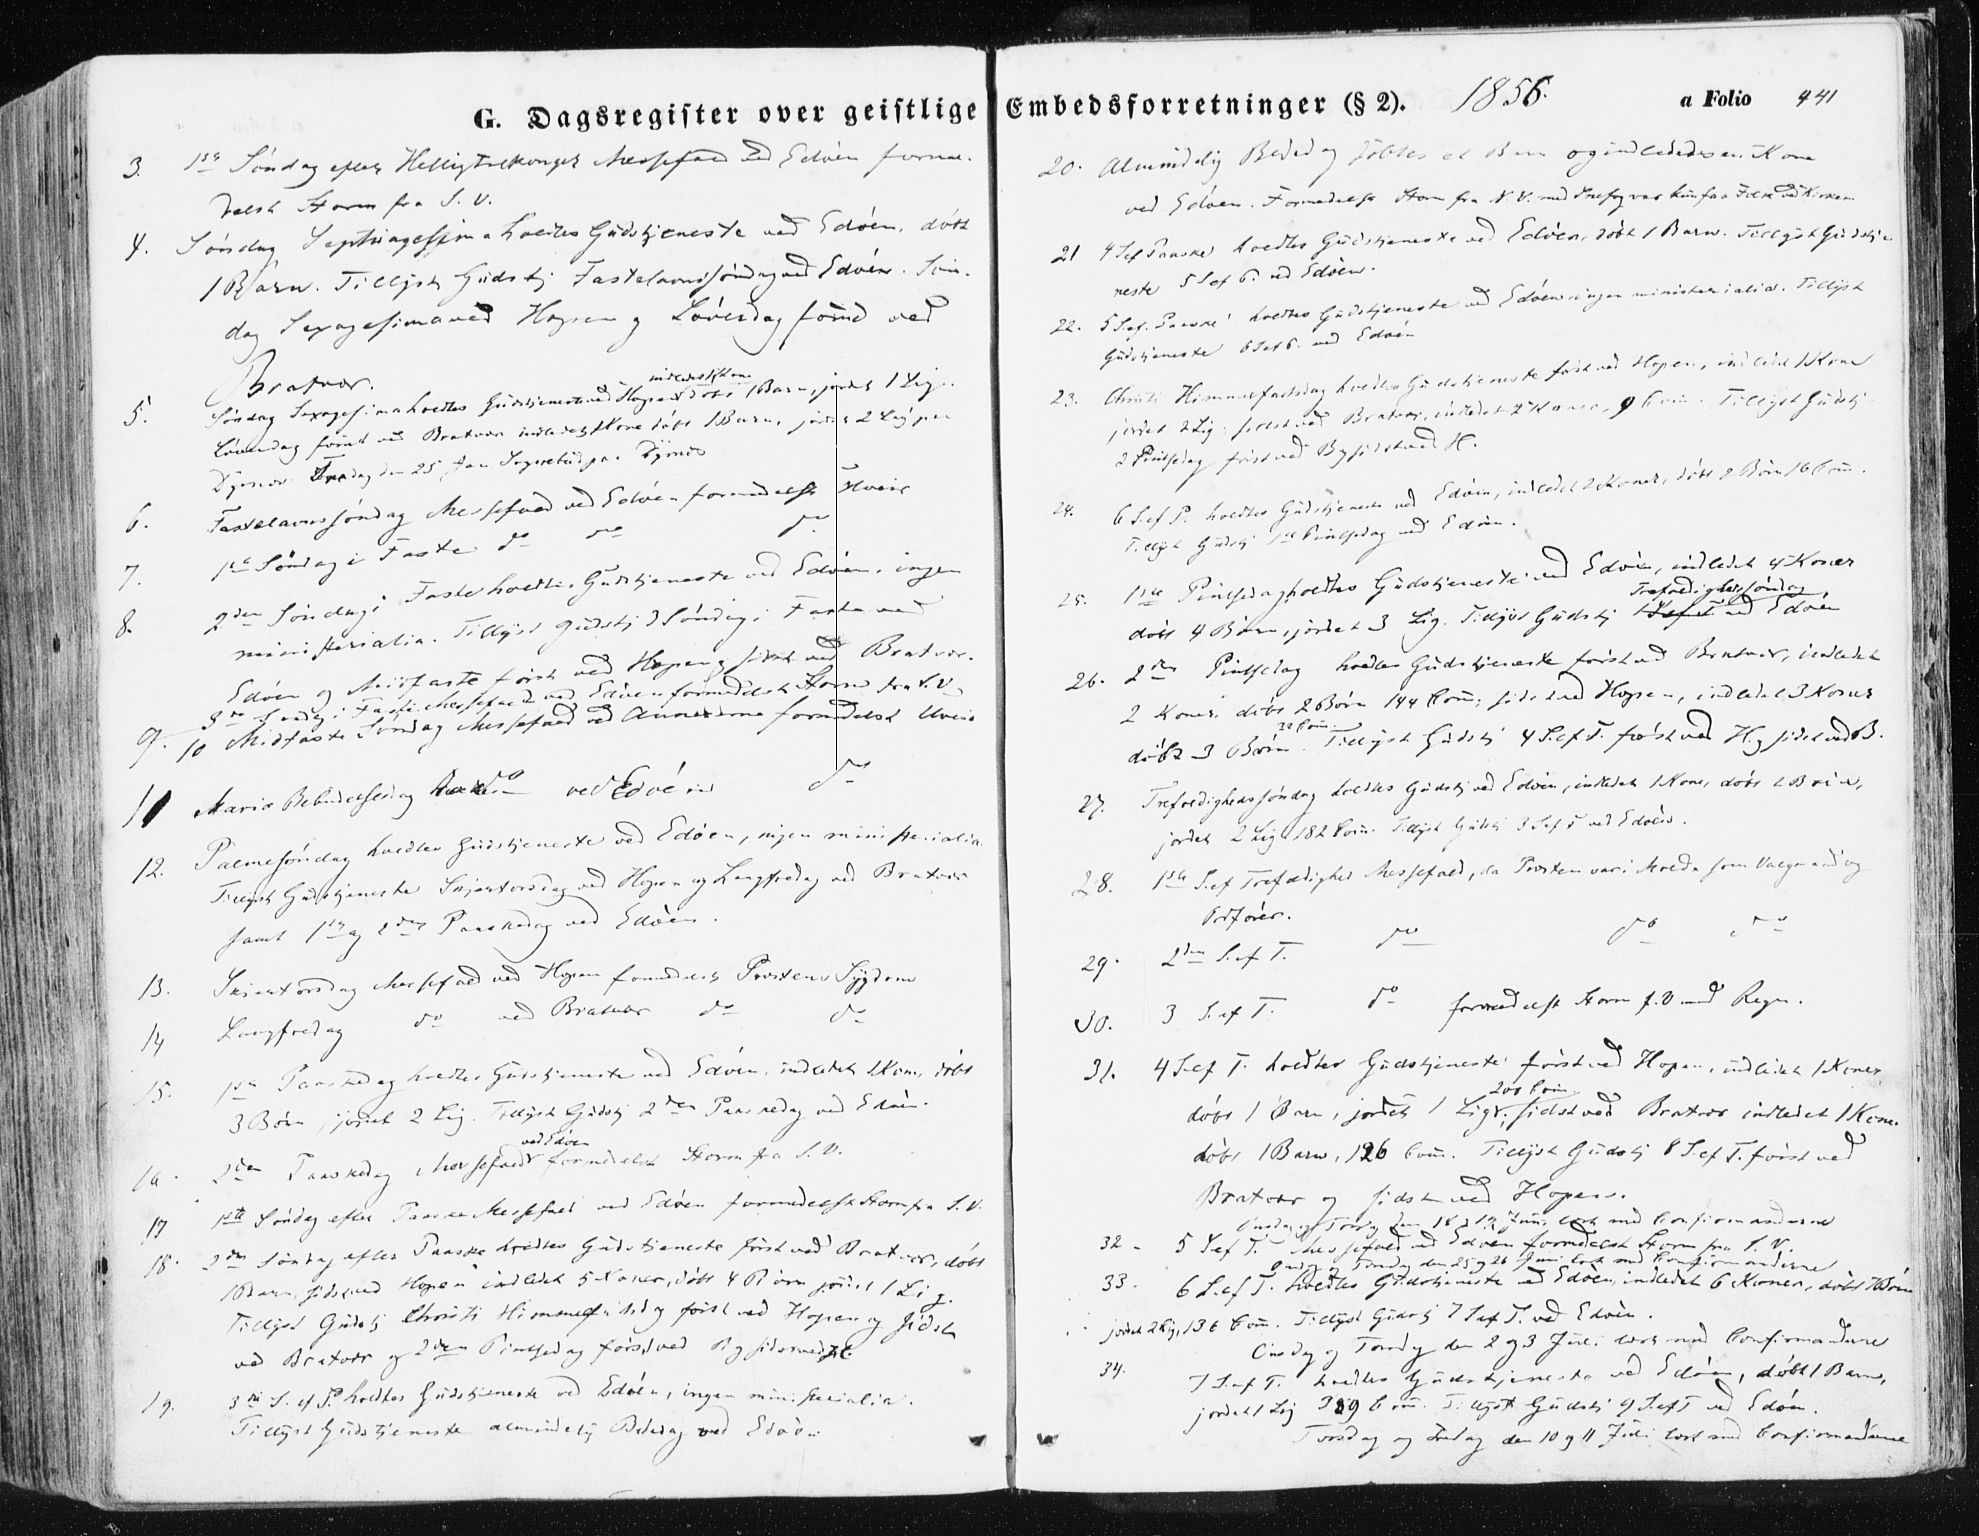 G. Dagsregister over geistlige Embedsforretninger (§ 2). 1856. a Folio 441
3. 1ste Søndag efter Helligtrekonger Messefald ved Edøen forme-
delst Storm fra S. V.
4. Søndag Septuagesima holdtes Gudstjeneste ved Edøen, døbt
1 Barn. Tillyst Gudstj Fastelavnssøndag ved Edøen. Søn-
dag Sexagesima ved Hopen og Løverdag forud ved
Bratvær.
indledet 1 Kone
5. Søndag Sexagesima holdtes Gudstjeneste ved Hopen døbt 1 Barn, jordet 1 Lig.
Løverdag forud ved Bratvær indledet 1 Kone døbt 1 Barn, jordet 2 Lig paa
Dyrnes. Fredag den 25 Jan Sognebud paa Dyrnes
6. Fastelavnssøndag Messefald ved Edøen formedelst Uveir
7. 1ste Søndag i Faste do do do
8. 2den Søndag i Faste holdtes Gudstjeneste ved Edøen, ingen
ministerialia. Tillyst Gudstj 3 Søndag i Faste ved
Edøen og Midfaste først ved Hopen og sidst ved Bratvær.
9. 3die Søndag i Faste Messefald ved Edøen formedelst Storm fra S. V.
10 Midfaste Søndag Messefald ved Annexerne formedelst Uveir
11 Maria Bebudelsesdag do ved Edøen do
12. Palmesøndag holdtes Gudstjeneste ved Edøen, ingen ministerialia.
Tillyst Gudstjeneste Skjærtorsdag ved Hopen og Langfredag ved Bratvær
samt 1ste og 2den Paaskedag ved Edøen.
13. Skjærtorsdag Messefald ved Hopen formedelst Provstens Sygdom
14 Langfredag do ved Bratvær do do
15. 1ste Paaskedag holdtes Gudstjeneste ved Edøen, indledet 1 Kone, døbt
3 Børn, jordet 2 Lig. Tillyst Gudstj 2den Paaskedag ved Edøen.
ved Edøen
16. 2den Paaskedag Messefald formedelst Storm fra S. V.
17 1ste Søndag efter Paaske Messefald ved Edøen formedelst Storm fra S. V.
18. 2den Søndag efter Paaske holdtes Gudstjeneste først ved Bratvær, døbt
1 Barn, sidst ved Hopen indledet 5 Koner, døbt 4 Børn jordet 1 Lig.
Tillyst Gudstj Christi Himmelfartsdag først ved Hopen og sidst
ved Bratvær og 2den Pintsedag først ved B og sidst ved H.
19. 3die S. ef P. holdtes Gudstjeneste ved Edøen, ingen ministerialia.
Tillyst Gudstjeneste almindelig Bededag ved Edøen
20. Almindelig Bededag døbtes et Barn og indlededes en Kone
ved Edøen. Formedelst Storm fra N. V. med Snefog var kun faa Folk ved Kirken
21 4 S ef Paaske holdtes Gudstjeneste ved Edøen, døbt 1 Barn. Tillyst Gudstje-
neste 5 S ef P. ved Edøen.
22. 5 S. ef. Paaske holdtes Gudstjeneste ved Edøen ingen ministerialia. Tillyst
Gudstjeneste 6 S ef P. ved Edøen
23. Christi Himmelfartsdag holdtes Gudstjeneste først ved Hopen, indledet 1 Kone
jordet 2 Lig; sidst ved Bratvær, indledet 2 Koner, 9 Com. Tillyst Gudstj
2 Pintsedag først ved B og sidst ved H.
24. 6 S. ef P. holdtes Gudstjeneste ved Edøen, indledet 2 Koner, døbt 2 Børn 16 Com.
Tillyst Gudstj 1ste Pintsedag ved Edøen.
25. 1ste Pintsedag holdtes Gudstjeneste ved Edøen, indledet 4 Koner
Trefoldighedssøndag
døbt 4 Børn, jordet 3 Lig. Tillyst Gudstj ved Edøen
26. 2den Pintsedag holdtes Gudstjeneste først ved Bratvær, indledet
2 Koner døbt 2 Børn 144 Com; sidst ved Hopen, indledet 3 Koner
døbt 3 Børn. Tillyst Gudstj 4 S. ef T. først ved H. og sidst ved B.
27. Trefoldighedssøndag holdtes Gudstj ved Edøen, indledet 1 Kone, døbt 2 Børn,
jordet 2 Lig 182 Com. Tillyst Gudstj 3 S ef T ved Edøen.
28. 1ste S. ef Trefoldighed Messefald, da Provsten var i Molde som Valgmand og
Ordfører.
29. 2den S. ef T. do do do
30. 3 S. ef T. do formedelst Storm f. V med Regn.
31. 4 S. ef T. holdtes Gudstjeneste først ved Hopen, indledet 1 Kone
200 Com.
døbt 1 Barn, jordet 1 Lig; sidst ved Bratvær indledet 1 Kone.
døbt 1 Barn, 126 Com. Tillyst Gudstj 8 S. ef T. først ved
Bratvær og sidst ved Hopen.
Onsdag og Torsdag den 18 og 19 Juni læst med Confirmanderne
32. 5 S ef T. Messefald ved Edøen formedelst Storm fra S. V.
Onsdag og Torsdag den 25 og 26 Juni læst med Confirmanderne
33. 6 S. ef T. holdtes Gudstjeneste ved Edøen, indledet 6 Koner, døbt 7 Børn
jordet 2 Lig, 136 Com. Tillyst Gudstj 7 S ef T. ved Edøen.
Onsdag og Torsdag den 2 og 3 Juli læst med Confirmanderne
34. 7 S. ef T. holdtes Gudstjeneste ved Edøen, døbt 1 Barn,
jordet 1 Lig 389 Com. Tillyst Gudstj 9 S. ef T ved Edøen.
Torsdag og Fredag den 10 og 11 Juli læst med Confirmanderne